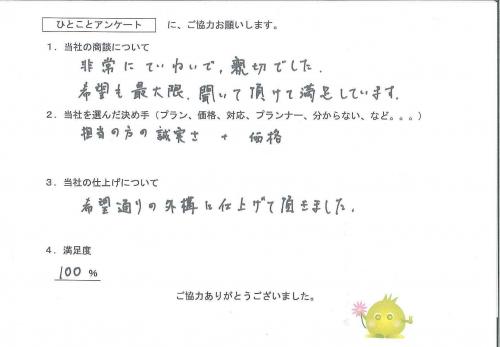 ひとことアンケート に、ご協力お願いします。
1．当社の商談について
非常にていねいで，親切でした．
希望も最大限，聞いて頂けて満足しています．
2．当社を選んだ決め手（プラン、価格、対応、プランナー、分からない、など。。。）
担当の方の誠実さ + 価格
3．当社の仕上げについて
希望通りの外構に仕上げて頂きました．
4．満足度
100 %
ご協力ありがとうございました。